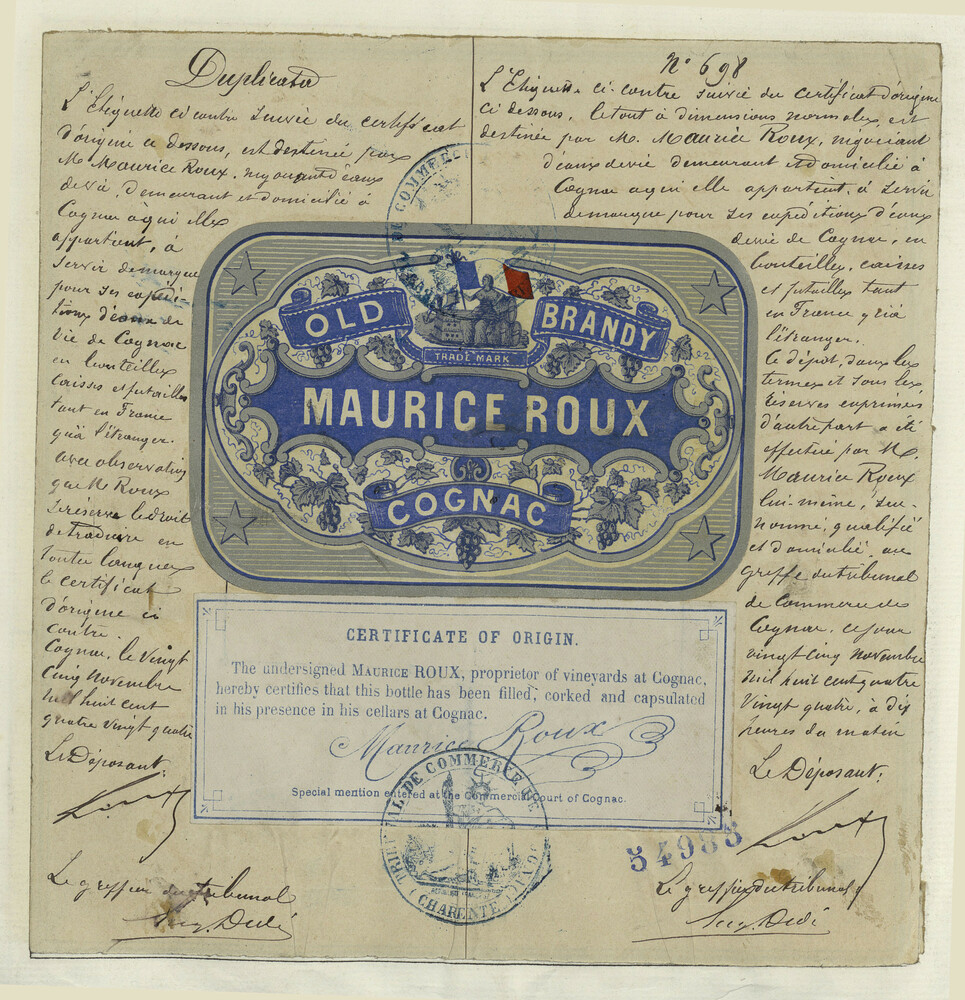 Duplicata
L'Etiquette ci contre suivie du certificat
d'origine ci dessous, est destinée par
M. Maurice Roux, négociant d'eaux
de vie, demeurant et domicilié à
Cognac à qui elle
appartient, à
servir de marque
pour ses expédi-
tions d'eaux de
Vie de Cognac
en bouteilles
caisses et futailles
tant en France
qu'à l'étranger.
avec observation
que M. Roux
se réserve le droit
de traduire en
toutes langues
le certificat
d'origine ci
contre.
Cognac, le Vingt
Cinq Novembre
mil huit cent
quatre vingt quatre
Le Déposant:
Roux
Le greffier du tribunal
Dedé
N° 698
L'Etiquette ci-contre suivie du certificat d'origine
ci dessous, le tout à dimensions normales, est
destinée par M. Maurice Roux, négociant
d'eaux de vie demeurant et domicilié à
Cognac à qui elle appartient, à servir
de marque pour ses expéditions d'eaux
de vie de Cognac, en
bouteilles, caisses
et futailles tant
en France qu'à
l'étranger.
Ce dépôt, dans les
termes et sous les
réserves exprimées
d'autre part a été
effectué par M.
Maurice Roux
lui-même, sus-
nommé, qualifié
et domicilié, au
greffe du tribunal
de Commerce de
Cognac, ce jour
vingt-cinq novembre
mil huit cent quatre
Vingt quatre, à dix
heures du matin
Le Déposant:
Roux
Le greffier du tribunal
Dedé
OLD BRANDY
TRADE MARK
MAURICE ROUX
COGNAC
CERTIFICATE OF ORIGIN.
The undersigned MAURICE ROUX, proprietor of vineyards at Cognac,
hereby certifies that this bottle has been filled, corked and capsulated
in his presence in his cellars at Cognac.
Maurice Roux
Special mention entered at the Commercial Court of Cognac.
TRIBUNAL DE COMMERCE DE COGNAC
(CHARENTE)
DE COMMERCE